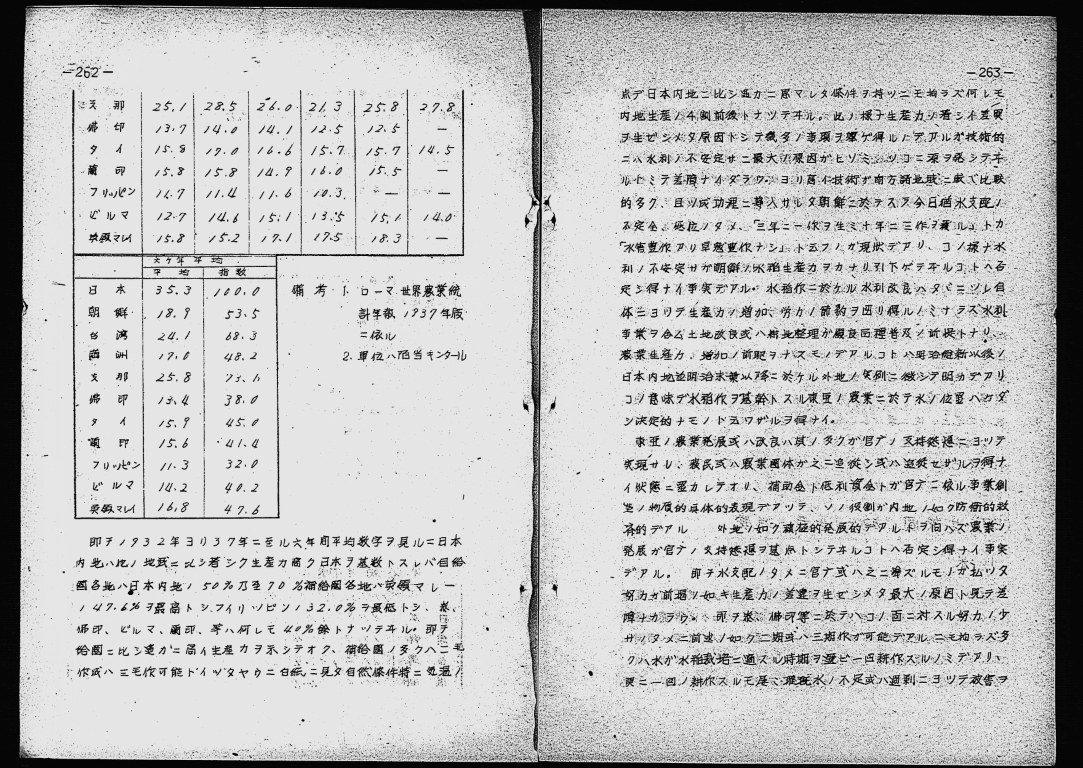 —262—
支那 25.1 28.5 26.0 21.3 25.8 27.8
佛印 13.7 14.0 14.1 12.5 12.5 —
タイ 15.8 17.0 16.6 15.7 15.7 14.5
蘭印 15.8 15.8 14.9 16.0 15.5 —
フリッピン 11.7 11.4 11.6 10.3 — —
ビルマ 12.7 14.6 15.1 13.5 15.1 14.0
英領マレイ 15.8 15.2 17.1 17.5 18.3 —
六ケ年平均
平均 指数
日本 35.3 100.0
朝鮮 18.9 53.5
台湾 24.1 68.3
満洲 17.0 48.2
支那 25.8 73.1
佛印 13.4 38.0
タイ 15.9 45.0
蘭印 15.6 41.4
フリッピン 11.3 32.0
ビルマ 14.2 40.2
英領マレイ 16.8 47.6
備考 1. ローマ世界農業統
計年報 1937年版
ニ依ル
2. 単位ハ陌当キンタール
即チ1932年ヨリ37年ニ至ル六年間平均数字ヲ見ルニ日本
内地ハ比ノ地域ニ比シ著シク生産力高ク日本ヲ基数トスレバ自給
國各地ハ日本内地ノ50%乃至70%補給國各地ハ英領マレー
ノ47.6%ヲ最高トシフイリッピン32.0%ヲ最低トシ、泰、
佛印、ビルマ、蘭印、等ハ何レモ40%餘トナッテヰル。即チ
給國ニ比シ遙カニ届イ生産力ヲ示シテオク、補給國ノ多クハ二毛
作或ハ三毛作可能ドイッタヤウニ自然ニ見タ自然條件特ニ気温ノ
—263—
点デ日本内地ニ比シ遙カニ恵マレタ條件ヲ持ツニモ拘ラズ何レモ
内地生産ノ4割前後トナッテヰル。此ノ様ナ生産力ノ著シイ差異
ヲ生ゼシメタ原因トシテ幾多ノ事項ヲ挙ゲ得ルノデアルガ技術的
ニハ水利ノ不安定サニ最大ノ原因ガヒソミ
ルトミテ差障ナイダラウ。ヨリ高イ技術ガ南方諸地域ニ較べ比較
的多ク、且ツ成功裡ニ導入サレタ朝鮮ニ於テスラ今日猶水支配ノ
不完全、 ノタメ、「三年ニ一作ヲ生ミ十年ニ三作ヲ穫ル」トカ
「水有豊作アリ早魃豊作ナシ」ト云フノガ現状デアリ、コノ様ナ水
利ノ不安定サガ朝鮮ノ水稲生産力ヲカナリ引下ゲテヰルコトハ否
定シ得ナイ事実デアル。水稲作ニ於ケル水利改良ハタバニソレ自
体ニヨリテ生産力ノ増加、労力ノ節約ヲ図リ得ルノミナラズ水利
事業ヲ含ム土地改良或ハ耕地整理ガ優良品種普及ノ前提トナリ、
農業生産力ノ増加ノ前駆ヲナスモノデアルコトハ明治維新以後ノ
日本内地並明治末葉以降ニ於ケル外地ノ実例ニ徴シテ明カデアリ
コノ意味デ水稲作ヲ基幹トスル東亜ノ農業ニ於テ水ノ位置ハケダ
シ決定的ナモノト云ワザルヲ得ナイ。
東亜ノ農業発展或ハ改良ハ其ノ多クガ官庁ノ支持慫慂ニヨッテ
実現サレ、農民或ハ農業團体ガ之ニ追従シ或ハ追従セザルヲ得ナ
イ状態ニ置カレテオリ、補助金ト低利資金トガ官庁ニ依ル事業創
造ノ物質的具体的表現デアッテ、ソノ役割ガ内地ノ如ク防衛的救
済的デアル 外地ノ如ク積極的発展的デアルトヲ問ハズ農業ノ
発展ガ官庁ノ支持慫慂ヲ基点トシテヰルコトハ否定シ得ナイ事実
デアル。即チ水支配ノタメニ官庁或ハ之ニ準ズルモノガ払ッタ
努力ガ前題ノ如キ生産力ノ差違ヲ生ゼシメタ最大ノ原因ト見テ差
障ナカラウ。即ヲ泰、佛印等ニ於テハコノ面ニ対スル努力ノ少
サイタメニ前述ノ如ク二期或ハ三期作ガ可能デアルニモ拘ラズ多
クハ水ガ水稲栽培ニ適スル時期ヲ選ビ一回耕作スルノミデアリ、
更ニ一回ノ耕作スルモ尾、灌漑水ノ不足或ハ過剰ニヨッテ被害ヲ